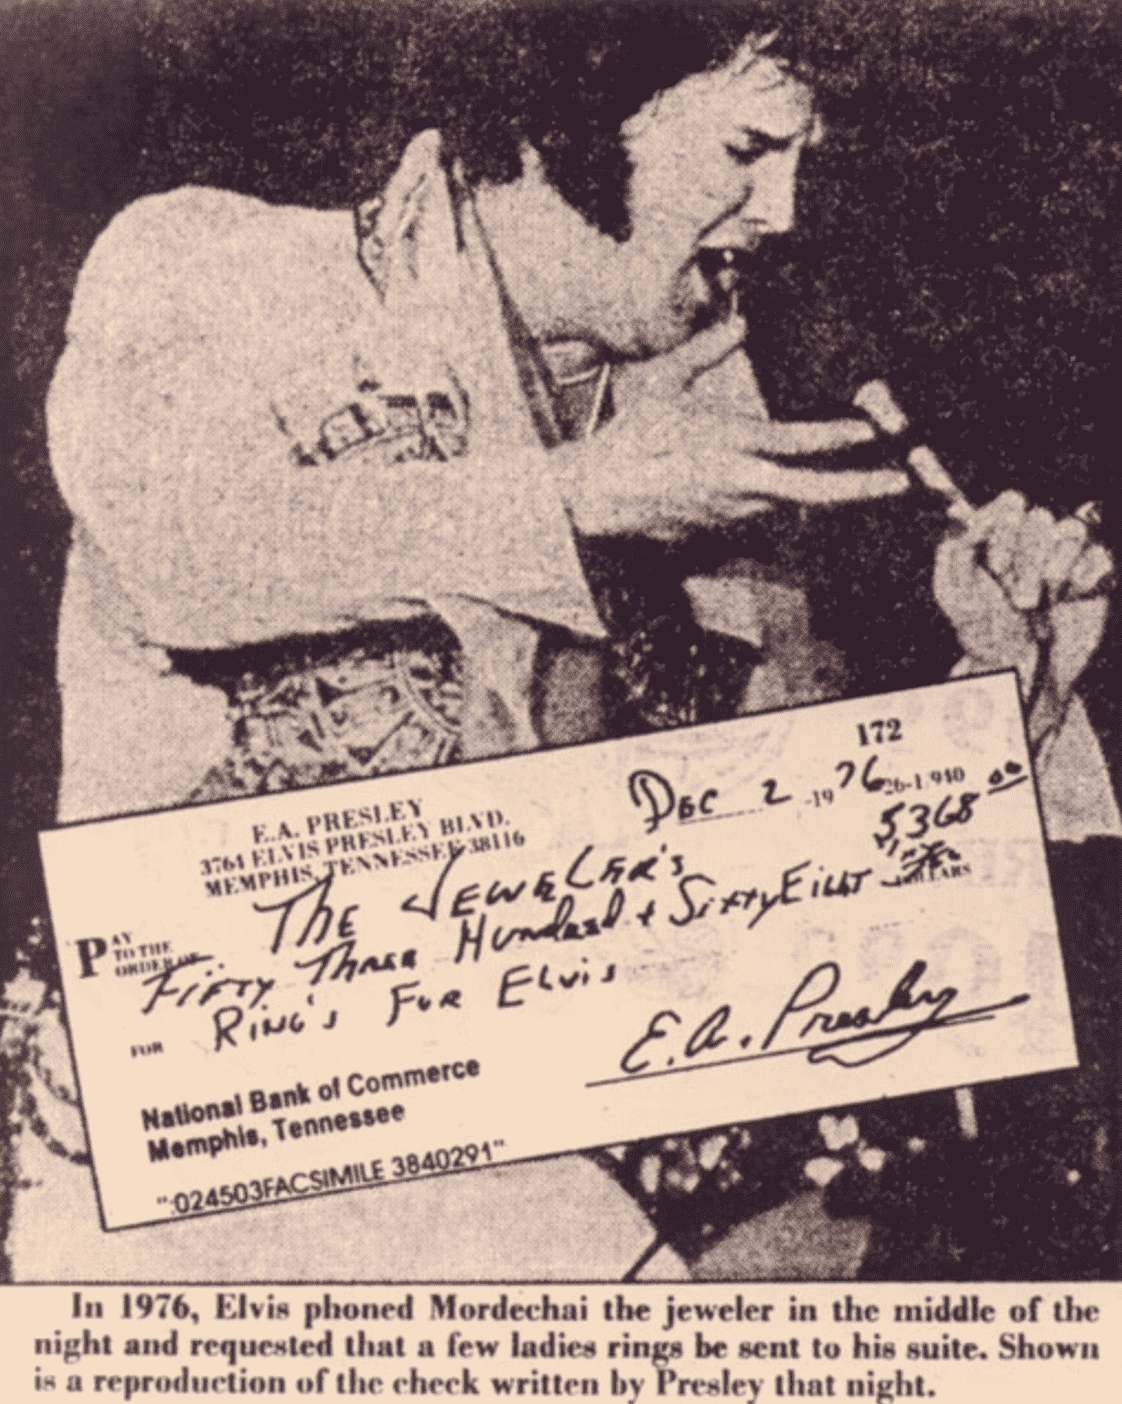 172
E.A. PRESLEY
3764 ELVIS PRESLEY BLVD.
MEMPHIS, TENNESSEE 38116
DEC 2 -19 76 26-1/940
5368 00
PAY TO THE ORDER OF THE JEWELER'S
FIFTY THREE Hundred + SixtyEIGHT DOLLARS
FOR RING'S FOR ELVIS
E.A. Presley
National Bank of Commerce
Memphis, Tennessee
":024503FACSIMILE 3840291"
In 1976, Elvis phoned Mordechai the jeweler in the middle of the
night and requested that a few ladies rings be sent to his suite. Shown
is a reproduction of the check written by Presley that night.